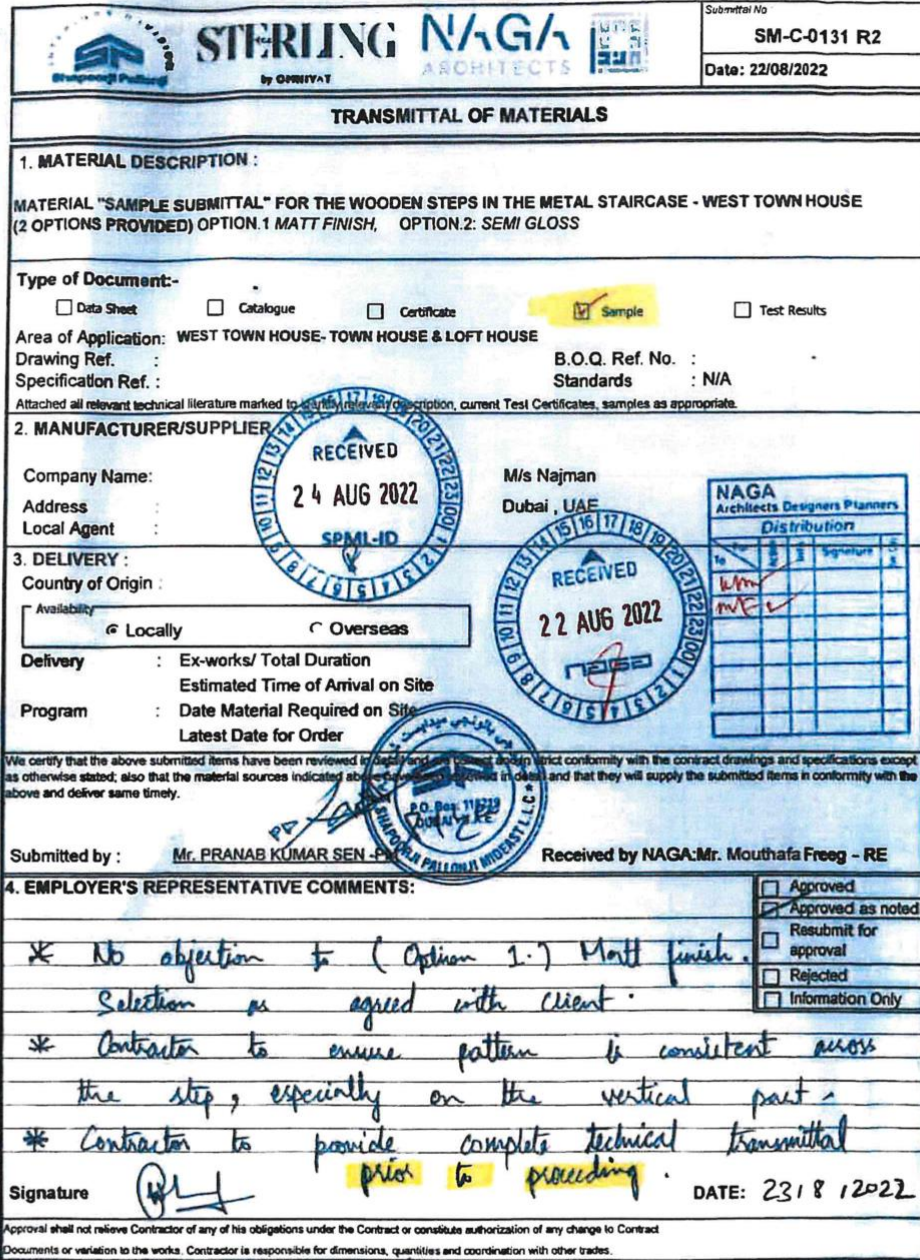 Submittal No
SM-C-0131 R2
Date: 22/08/2022
Shapoorji Pallonji
STERLING
by OMNIYAT
NAGA
ARCHITECTS
TRANSMITTAL OF MATERIALS
1. MATERIAL DESCRIPTION :
MATERIAL "SAMPLE SUBMITTAL" FOR THE WOODEN STEPS IN THE METAL STAIRCASE - WEST TOWN HOUSE
(2 OPTIONS PROVIDED) OPTION.1 MATT FINISH, OPTION.2: SEMI GLOSS
Type of Document:-
Data Sheet Catalogue Certificate Sample Test Results
Area of Application: WEST TOWN HOUSE- TOWN HOUSE & LOFT HOUSE
Drawing Ref. : B.O.Q. Ref. No. :
Specification Ref. : Standards : N/A
Attached all relevant technical literature marked to identify relevant description, current Test Certificates, samples as appropriate.
2. MANUFACTURER/SUPPLIER
RECEIVED
24 AUG 2022
SPML-ID
Company Name: M/s Najman
Address : Dubai , UAE
Local Agent :
NAGA
Architects Designers Planners
Distribution
To Signature
3. DELIVERY :
Country of Origin :
RECEIVED
22 AUG 2022
naga
Availability
Locally Overseas
Delivery : Ex-works/ Total Duration
Estimated Time of Arrival on Site
Program : Date Material Required on Site
Latest Date for Order
We certify that the above submitted items have been reviewed in detail and are correct and in strict conformity with the contract drawings and specifications except
as otherwise stated; also that the material sources indicated above have been reviewed in detail and that they will supply the submitted items in conformity with the
above and deliver same timely.
SHAPOORJI PALLONJI MIDEAST L.L.C
Submitted by : Mr. PRANAB KUMAR SEN -PM Received by NAGA:Mr. Mouthafa Freeg - RE
4. EMPLOYER'S REPRESENTATIVE COMMENTS:
Approved
Approved as noted
Resubmit for
approval
Rejected
Information Only
* No objection to (Option 1.) Matt finish.
Selection as agreed with client.
* Contractor to ensure pattern is consistent across
the step, especially on the vertical part.
* Contractor to provide complete technical transmittal
prior to proceeding.
Signature DATE: 23/8/2022
Approval shall not relieve Contractor of any of his obligations under the Contract or constitute authorization of any change to Contract
Documents or variation to the works. Contractor is responsible for dimensions, quantities and coordination with other trades.